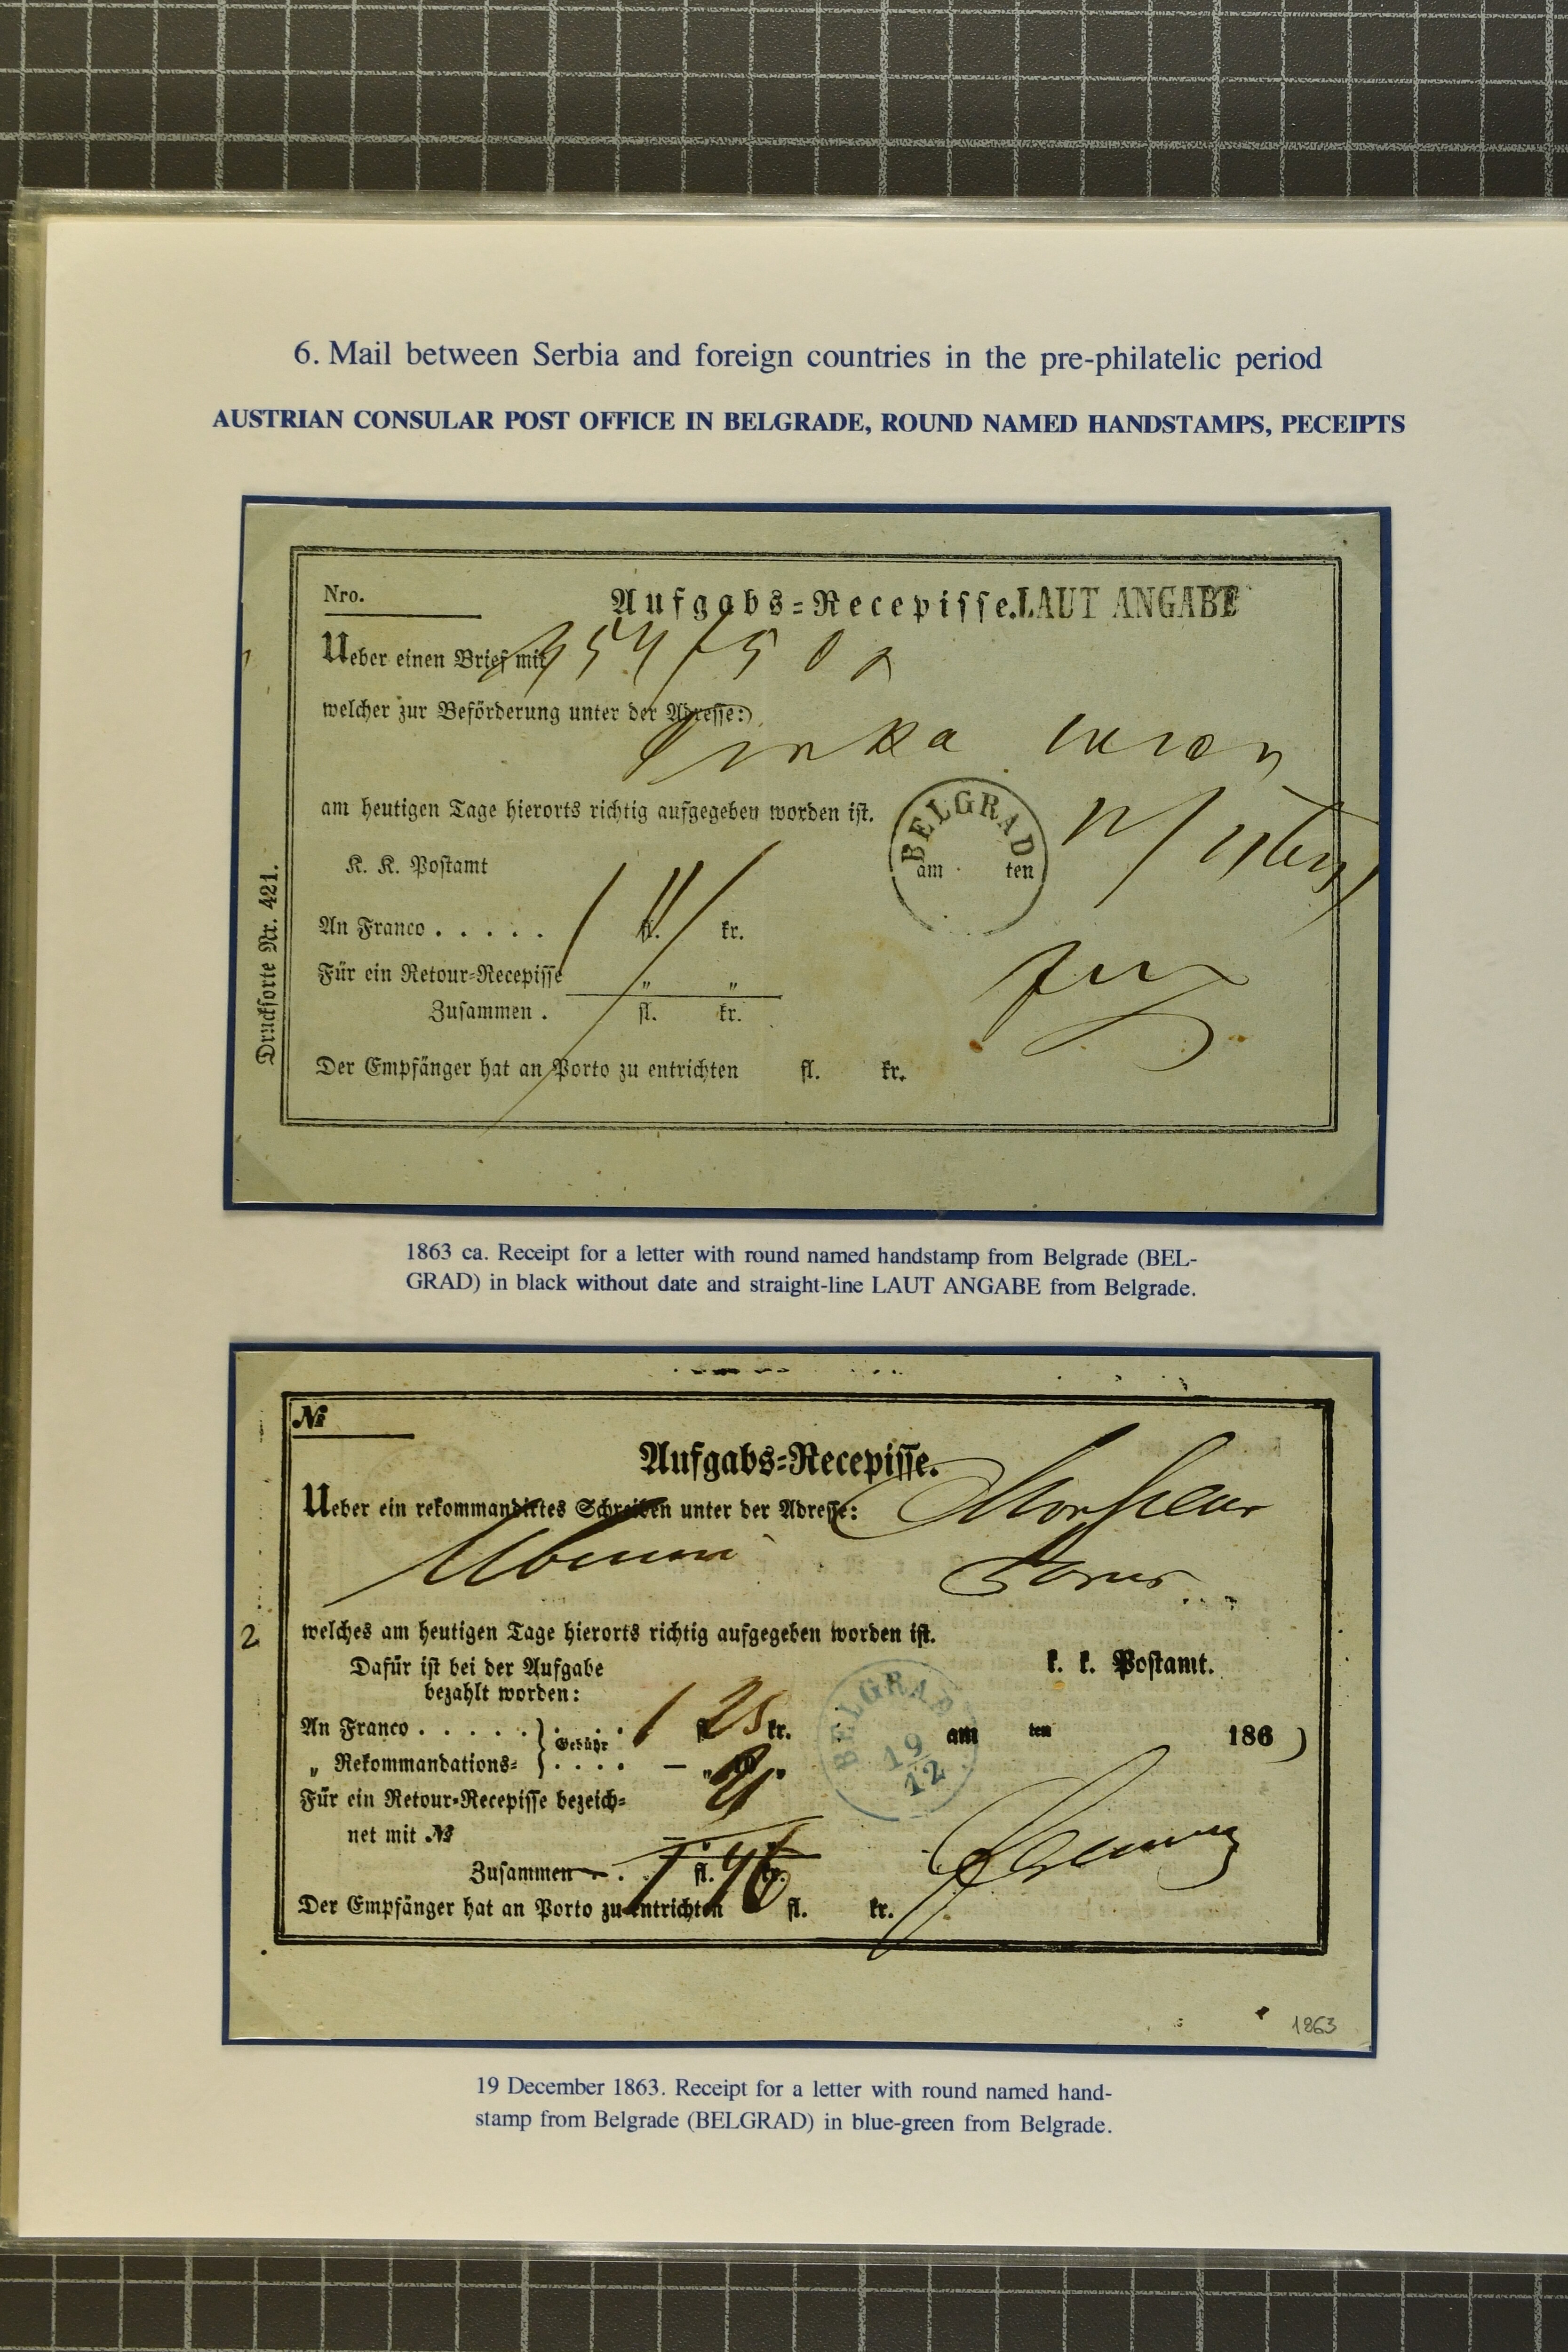 6. Mail between Serbia and foreign countries in the pre-philatelic period
AUSTRIAN CONSULAR POST OFFICE IN BELGRADE, ROUND NAMED HANDSTAMPS, PECEIPTS
Nro.
Aufgabs=Recepisse. LAUT ANGABE
Ueber einen Brief mit
welcher zur Beförderung unter der Adresse:
am heutigen Tage hierorts richtig aufgegeben worden ist.
BELGRAD
K. K. Postamt
am ten
An Franco . . . . . fl. kr.
Für ein Retour=Recepisse " "
Zusammen . fl. kr.
Der Empfänger hat an Porto zu entrichten fl. kr.
Drucksorte Nr. 421.
1863 ca. Receipt for a letter with round named handstamp from Belgrade (BEL-
GRAD) in black without date and straight-line LAUT ANGABE from Belgrade.
№
Aufgabs=Recepisse.
Ueber ein rekommandirtes Schreiben unter der Adresse: Monsieur
2
welches am heutigen Tage hierorts richtig aufgegeben worden ist.
Dafür ist bei der Aufgabe
k. k. Postamt.
bezahlt worden:
BELGRAD
19
12
An Franco . . . . . Gebühr . . . 1 fl. 25 kr.
am ten 186
„ Rekommandations= . . . .
Für ein Retour=Recepisse bezeich=
net mit №
Zusammen . . 1 fl. 46 kr.
Der Empfänger hat an Porto zu entrichten fl. kr.
1863
19 December 1863. Receipt for a letter with round named hand-
stamp from Belgrade (BELGRAD) in blue-green from Belgrade.